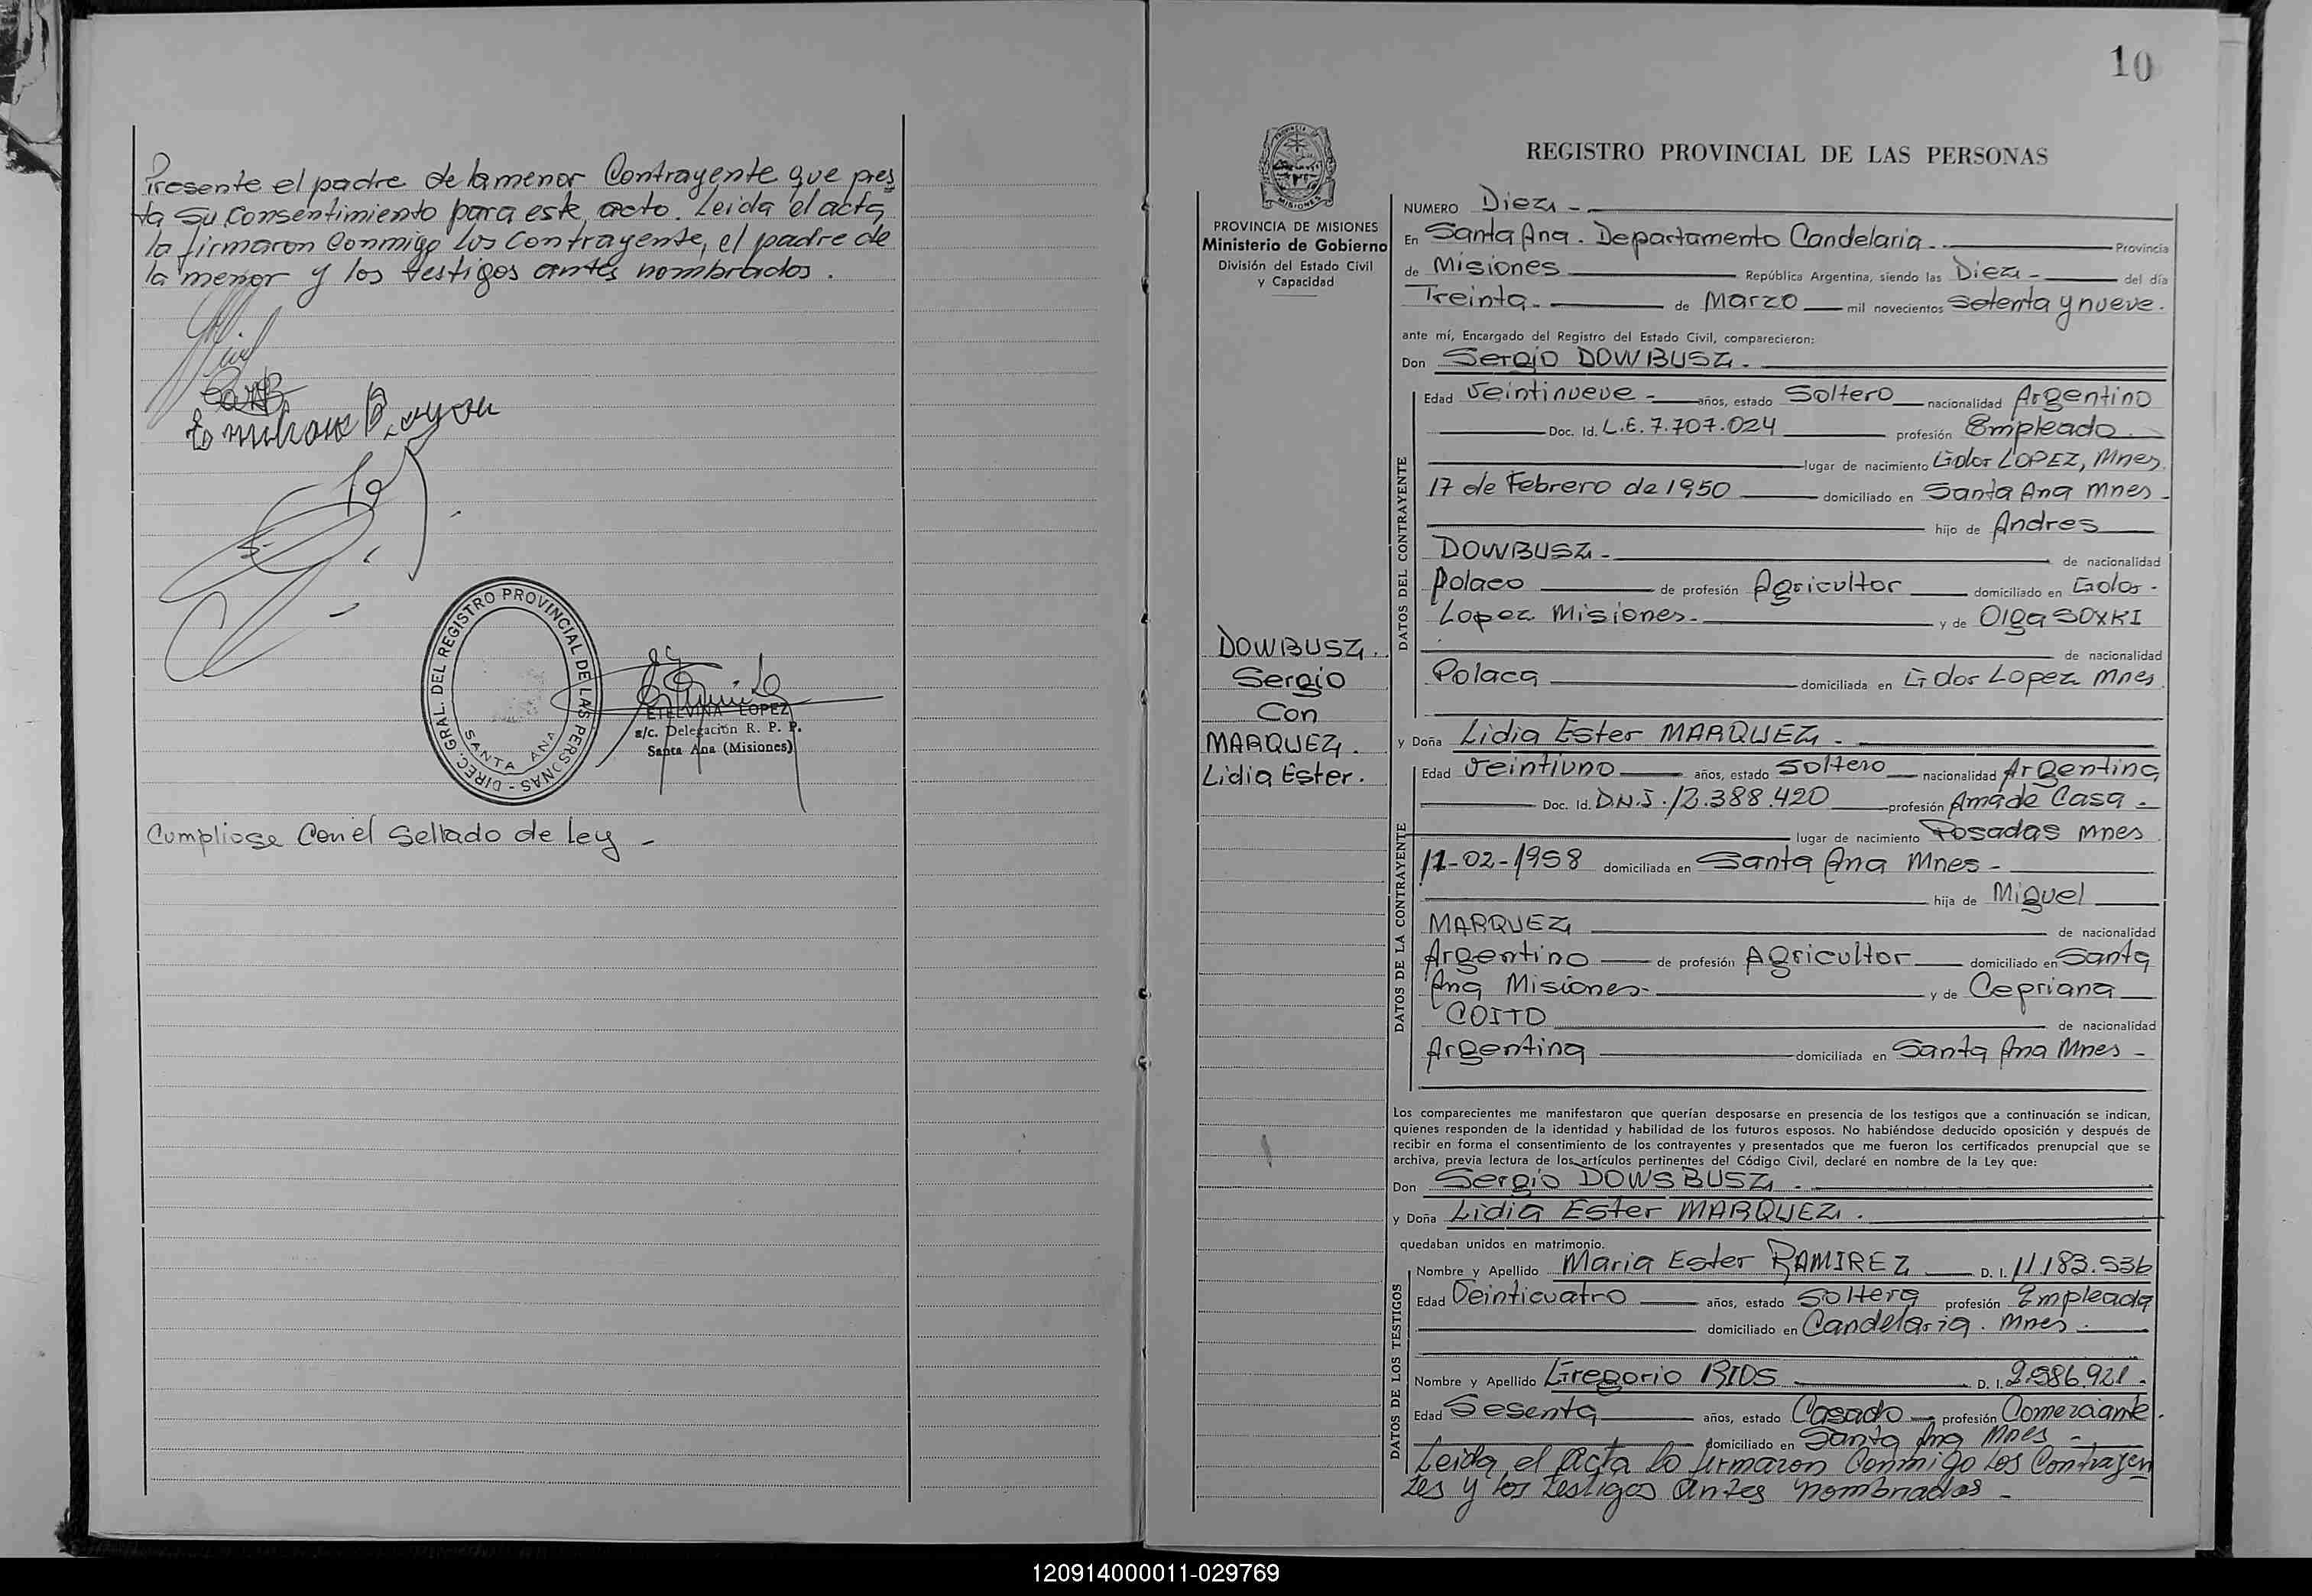 Presente el padre de la menor Contrayente que pres
ta su consentimiento para este acto. Leida el acta
la firmaron conmigo los Contrayente, el padre de
la menor y los testigos antes nombrados.
DIREC. GRAL. DEL REGISTRO PROVINCIAL DE LAS PERSONAS -
SANTA ANA
ETELVINA LOPEZ
a/c. Delegación R. P. P.
Santa Ana (Misiones)
Cumpliose Con el Sellado de Ley -
10
PROVINCIA DE MISIONES
Ministerio de Gobierno
División del Estado Civil
y Capacidad
DOWBUSZ.
Sergio
Con
MARQUEZ.
Lidia Ester.
REGISTRO PROVINCIAL DE LAS PERSONAS
NUMERO Diez -
En Santa Ana. Departamento Candelaria. Provincia
de Misiones República Argentina, siendo las Diez - del día
Treinta. de Marzo mil novecientos setenta y nueve.
ante mí, Encargado del Registro del Estado Civil, comparecieron:
Don Sergio DOWBUSZ.
DATOS DEL CONTRAYENTE
Edad Veintinueve - años, estado Soltero nacionalidad Argentino
Doc. Id. L.E. 7.707.024 profesión Empleado
lugar de nacimiento Gdor LOPEZ, Mnes
17 de Febrero de 1950 domiciliado en Santa Ana Mnes -
hijo de Andres
DOWBUSZ - de nacionalidad
Polaco de profesión Agricultor domiciliado en Gdor -
Lopez Misiones. y de Olga SOXKI
de nacionalidad
Polaca domiciliada en Gdor Lopez Mnes
y Doña Lidia Ester MARQUEZ -
DATOS DE LA CONTRAYENTE
Edad Veintiuno años, estado Soltero nacionalidad Argentina
Doc. Id. D.N.I. 12.388.420 profesión Ama de Casa -
lugar de nacimiento Posadas Mnes
11-02-1958 domiciliada en Santa Ana Mnes -
hija de Miguel
MARQUEZ de nacionalidad
Argentino de profesión Agricultor domiciliado en Santa
Ana Misiones - y de Cepriana
COITO de nacionalidad
Argentina domiciliada en Santa Ana Mnes -
Los comparecientes me manifestaron que querían desposarse en presencia de los testigos que a continuación se indican,
quienes responden de la identidad y habilidad de los futuros esposos. No habiéndose deducido oposición y después de
recibir en forma el consentimiento de los contrayentes y presentados que me fueron los certificados prenupcial que se
archiva, previa lectura de los artículos pertinentes del Código Civil, declaré en nombre de la Ley que:
Don Sergio DOWSBUSZ.
y Doña Lidia Ester MARQUEZ.
quedaban unidos en matrimonio.
DATOS DE LOS TESTIGOS
Nombre y Apellido Maria Ester RAMIREZ D. I. 11.183.536
Edad Veinticuatro años, estado Soltera profesión Empleada
domiciliado en Candelaria. Mnes.
Nombre y Apellido Gregorio RIOS D. I. 2.586.921.
Edad Sesenta años, estado Casado profesión Comerciante.
domiciliado en Santa Ana Mnes -
Leida el Acta lo firmaron Conmigo los Contrayen
tes y los testigos antes nombrados -
120914000011-029769